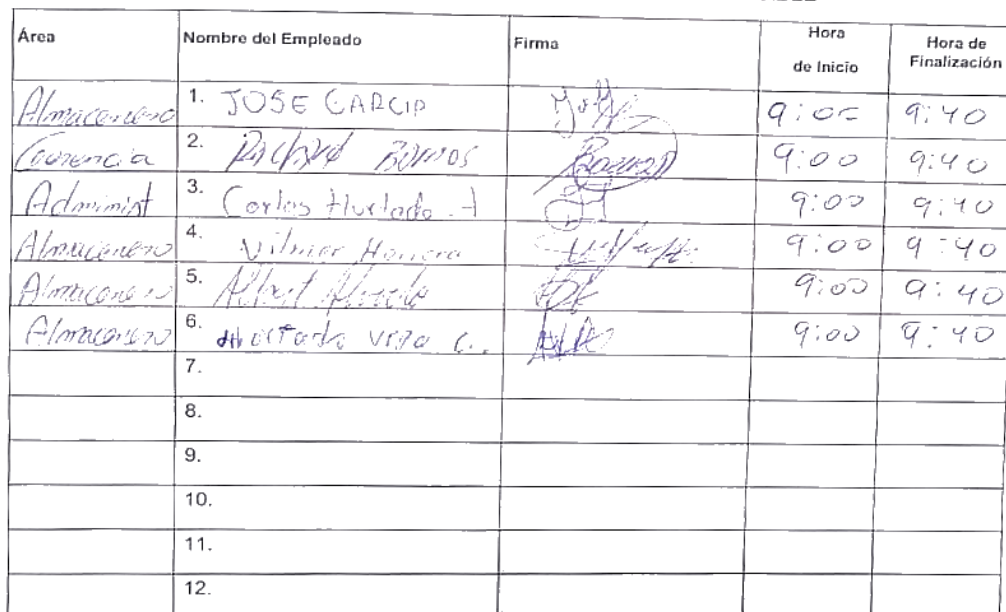 Área Nombre del Empleado Firma Hora de Inicio Hora de Finalización
Almacenero 1. JOSE GARCIA 9:00 9:40
Gerencia 2. Richard 9:00 9:40
Administ 3. Carlos Hurtado. A 9:00 9:40
Almacenero 4. Vilmer Herrera 9:00 9:40
Almacenero 5. Albert 9:00 9:40
Almacenero 6. Hurtado Vega C. 9:00 9:40
7.
8.
9.
10.
11.
12.